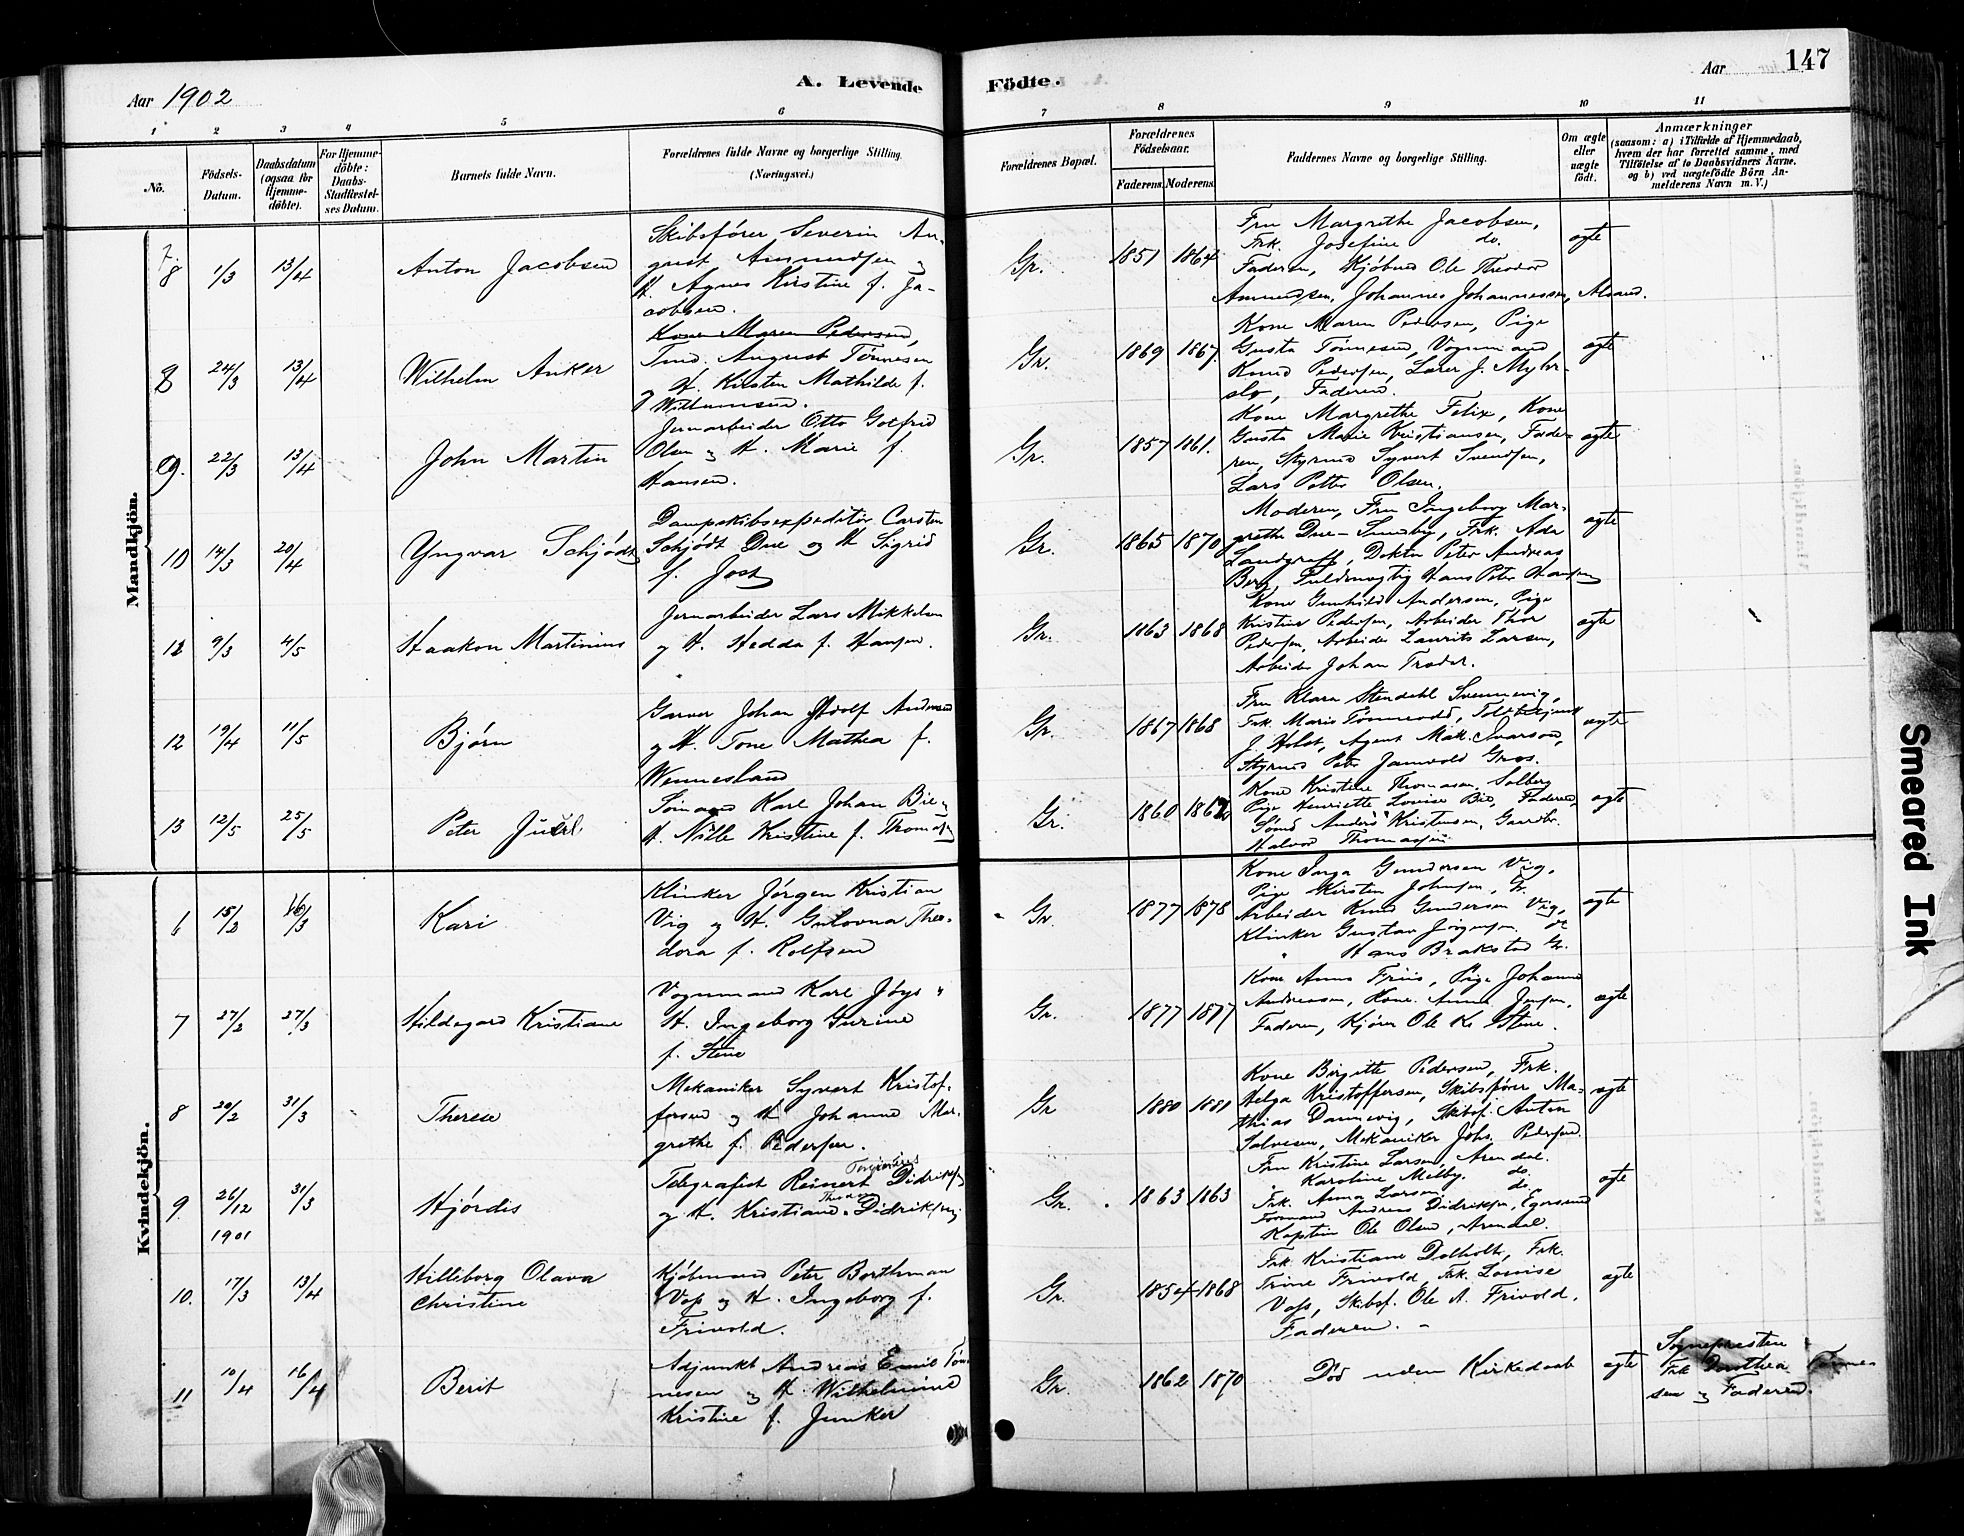 147
Aar 1902
A. Levende
Födte.
Aar
1 2 3 4 5 6 7 8 9 10 11
No.
Födsels-
Datum.
Daabsdatum
(ogsaa for
Hjemme-
döbte).
For Hjemme-
döbte:
Daabs-
Stadfæstel-
ses Datum.
Barnets fulde Navn.
Forældrenes fulde Navne og borgerlige Stilling.
(Næringsvei.)
Forældrenes Bopæl.
Forældrenes
Födselsaar.
Faderens. Moderens.
Faddernes Navne og borgerlige Stilling.
Om ægte
eller
uægte
födt.
Anmærkninger
(saasom: a) i Tilfælde af Hjemmedaab,
hvem der har forrettet samme, med
Tilföielse af to Daabsvidners Navne.
og b) ved uægtefödte Börn An-
melderens Navn m. V.)
Mandkjön.
7.
8 1/3 13/4 Anton Jacobsen
Skibsfører Severin Au-
gust Amundsen og
H. Agnes Kirstine f. Ja-
cobsen.
Gr. 1851 1864
Fru Margrethe Jacobsen,
Frk. Josefine do.
Faderen, Kjøbmd Ole Theodor
Amundsen, Johannes Johannessen,
ægte
8 24/3 13/4 Wilhelm Anker
Kone Maren Pedersen,
Tmd. August Tønnesen
og H. Kirsten Mathilde f.
Willumsen.
Gr. 1869 1867.
Kone Maren Pedersen, Pige
Gusta Tønnesen, Vognmand
Knud Pedersen, Lærer J. Myhr-
slo, Faderen.
ægte
9. 22/3 13/4 John Martin
Jernarbeider Otto Gotfred
Olsen og H. Marie f.
Hansen.
Gr. 1857 1861.
Kone Margrethe Felix, Kone
Gusta Marie Kristiansen, Fade-
ren, Styrmd Syvert Svendsen,
Lars Petter Olsen.
ægte
10 14/3 20/4 Yngvar Schjødt
Dampskibsexpeditør Carsten
Schjødt Due og H Sigrid
f. Jost
Gr. 1865 1870
Moderen, Fru Ingeborg Mar-
grethe Due-Sundby, Frk. Ada
Landgraff, Doktor Peter Andreas
Berg, Fuldmægtig Hans Peter Hansen
ægte
12 9/3 4/5 Haakon Martinius
Jernarbeider Lars Mikkelsen
og H. Hedda f. Hansen.
Gr. 1863 1868
Kone Gunhild Andersen, Pige
Kristine Pedersen, Arbeider Thor
Pedersen, Arbeider Laurits Larsen,
Arbeider Johan
ægte
12 19/4 11/5 Bjørn
Garver Johan Adolf Andersen
og H. Tone Mathea f.
Wennesland
Gr. 1867 1868
Fru Klara Stendahl Svennevig,
Frk. Marie Tønnevold,
J. Holst, Agent Mak. Ivarsen,
Styrmd Peter Jamvold Groos.
ægte
13 12/5 25/5 Peter Juul
Sømand Karl Johan Bie og
H. Nille Kristine f. Thomassen
Gr. 1860
Kone Kristine Thomasen, Solberg
Pige Henriette Lovise Bie, Faderen,
Sømd Anders Kristensen, Gaardbr.
Halvor Thomassen
ægte
Kvindekjön.
6 15/2 16/3 Kari
Klinker Jørgen Kristian
Vig og H. Gulovna Theo-
dora f. Rolfsen
Gr. 1877 1878
Kone Inga Gundersen Vig,
Pige Kirsten Johnsen, Fr.
Arbeider Knud Gundersen Vig,
Klinker Gustav Jørgensen do
" Hans Brakstad Gr.
ægte
7 27/2 27/3 Hildegard Kristiane
Vognmand Karl Jøys
H. Ingeborg Gurine
f. Stene
Gr. 1877 1877
Kone Anne Friis, Pige Johanne
Andreasen, Kone Anna Jensen,
Faderen, Kjører Ole Kr. Stene.
ægte
8 20/2 31/3 Therese
Mekaniker Syvert Kristof-
fersen og H. Johanne Mar-
grethe f. Pedersen.
Gr 1880 1881
Kone Birgitte Pedersen, Frk.
Helga Kristoffersen, Skibsfører Ma-
thias Dannevig, Skibsf. Anton
Salvesen, Mekaniker Johs. Pedersen.
ægte
9 26/12 31/3 Hjørdis
1901
Telegrafist Reinert Didriksen
og H. Kristiane Didriksen
Gr. 1863 1863
Fru Kristine Larsen, Arendal.
" Karoline Melby. do.
Frk. Anna Larsen do.
Formand Andreas Didriksen, Egersund
Kaptein Ole Olsen, Arendal.
ægte
10. 17/3 13/4 Hilleborg Olava
Christine
Kjøbmand Peter Borthman
Voss og H. Ingeborg f.
Frivold.
Gr. 1854 1868
Frk Kristiane Dalholt, Frk.
Trine Frivold, Frk. Lovise
Voss, Skibsf. Ole A. Frivold,
Faderen.
ægte
11 10/4 16/4 Berit
Adjunkt Andreas Emil Tøn-
nesen og H. Wilhelmine
Kristine f. Junker
Gr. 1862 1870
Død uden Kirkedaab
ægte
Sognepresten
Frk Dorthea Tønnes-
sen og Faderen.
Smeared Ink